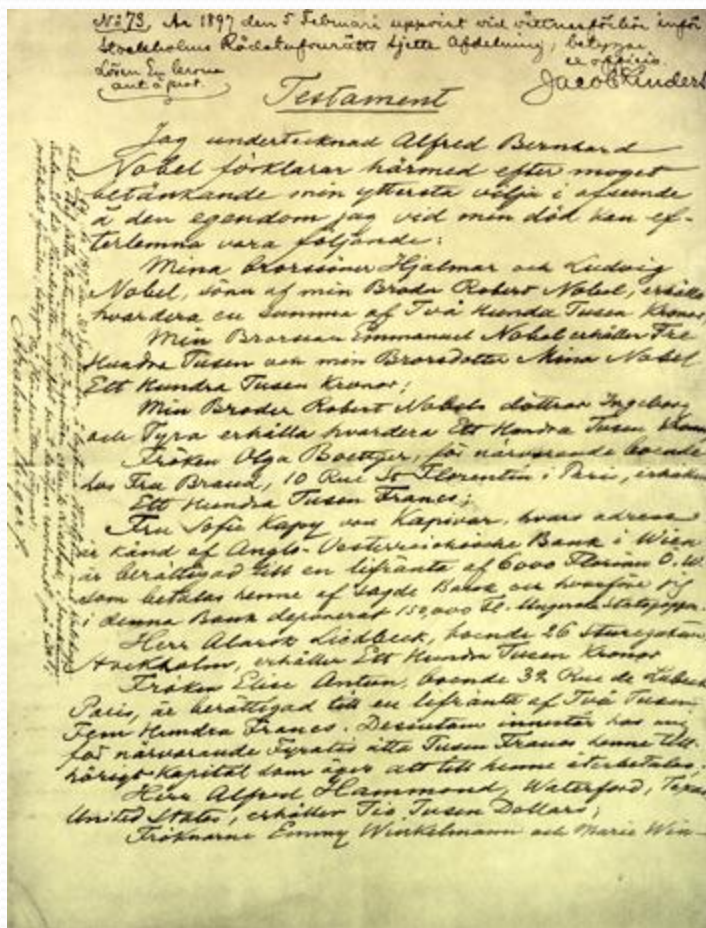 No 73, År 1897 den 5 Februari uppvist vid vittnesförhör inför
Stockholms Rådstufvurätts Sjette Afdelning; betygar
Lösen En krona
ex officio.
Testament
Jag undertecknad Alfred Bernhard
Nobel förklarar härmed efter moget
betänkande min yttersta vilja i afseende
å den egendom jag vid min död kan ef-
terlemna vara följande:
Mina Brorsöner Hjalmar och Ludvig
Nobel, söner af min Broder Robert Nobel, erhålla
hvardera en summa af Två Hundra Tusen Kronor;
Min Brorson Emmanuel Nobel erhåller Tre
Hundra Tusen och min Brorsdotter Mina Nobel
Ett Hundra Tusen Kronor;
Min Broder Robert Nobels döttrar Ingeborg
och Tyra erhålla hvardera Ett Hundra Tusen Kronor
Fröken Olga Boettger, för närvarande boende
hos Fru Brand, 10 Rue St Florentin i Paris, erhåller
Ett Hundra Tusen Francs;
Fru Sofie Kapy von Kapivar, hvars adress
är känd af Anglo-Oesterreichische Bank i Wien
är berättigad till en lifränta af 6000 Florins Ö.W.
som betalas henne af sagde Bank och hvarföre jag
i denna Bank deponerat 150,000 Fl. i Ungerska Statspapper.
Herr Alarik Liedbeck, boende 26 Sturegatan,
Stockholm, erhåller Ett Hundra Tusen Kronor
Fröken Elise Antun, boende 32 Rue de Lubeck
Paris, är berättigad till en lifränta af Två Tusen
Fem Hundra Francs. Dessutom innestår hos mig
för närvarande Fyratio åtta Tusen Francs henne till-
hörigt kapital som äger att till henne återbetalas;
Herr Alfred Hammond, Waterford, Texas
United States, erhåller Tio Tusen Dollars;
Fröknarne Emmy Winkelmann och Marie Win-